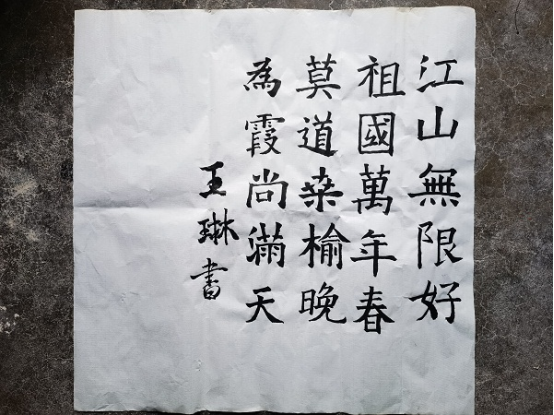 江山無限好
祖國萬年春
莫道桑榆晚
為霞尚滿天
王琳書